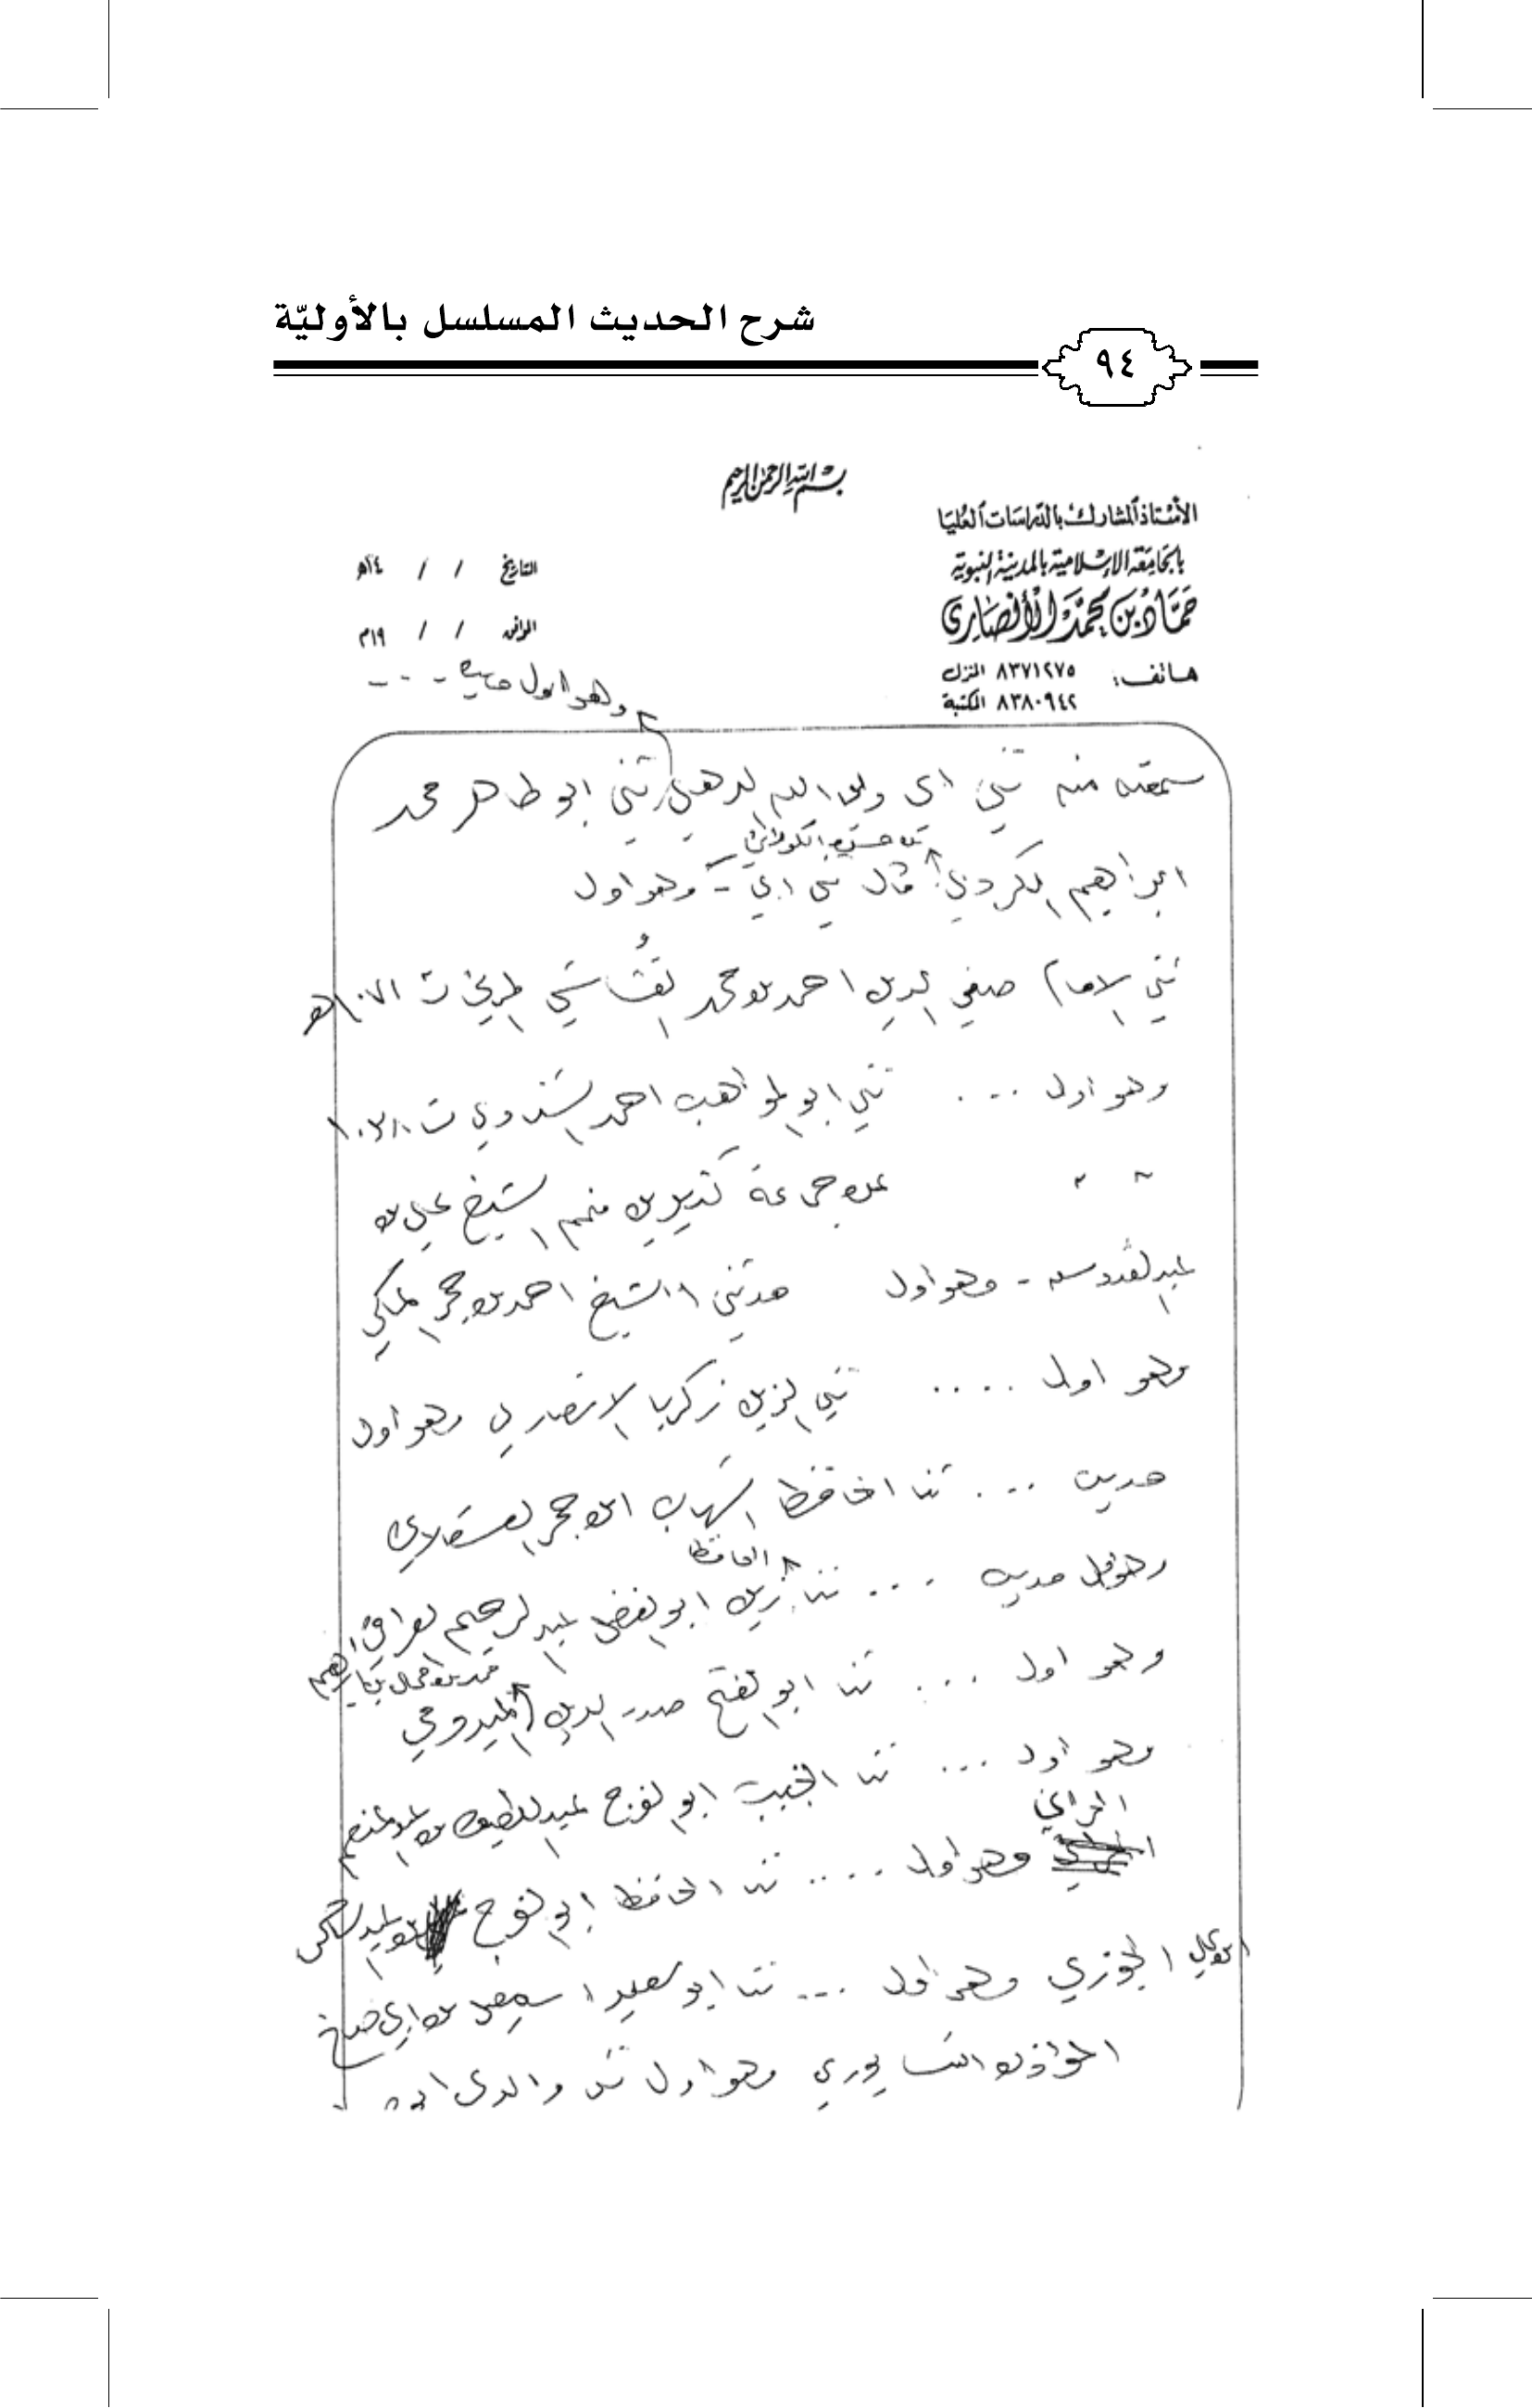 شرح الحديث المسلسل بالأوليّة
٩٤
بسم الله الرحمن الرحيم
الأستاذ المشارك بالدراسات العليا
بالجامعة الإسلامية بالمدينة النبوية
حماد بن محمد الأنصاري
هاتف: ٨٣٧١٢٧٥ المنزل
٨٣٨٠٩٤٢ المكتبة
التاريخ / / ١٤هـ
الموافق / / ١٩م
وهو اول حديث - - -
سمعته منه ثني اي ولي الله الدهلوي ثني ابو طاهر محمد
بن حسن الكوراني
ابراهيم الكردي قال ثني ابي - وهو اول
ثني الامام صفي الدين احمد بن محمد القُشاشي المدني ت ١٠٧١هـ
وهو اول ... ثني ابو المواهب احمد الشناوي ت ١٠٢٨
" " عن جماعة كثيرين منهم الشيخ علي بن
عبد القدوس - وهو اول حدثني الشيخ احمد بن حجر المكي
وهو اول .... ثني الزين زكريا الانصاري وهو اول
حديث ... ثنا الحافظ الشهاب ابن حجر العسقلاني
الحافظ
وهو اول حديث ... ثنا الزين ابو الفضل عبد الرحيم العراقي
محمد بن محمد بن ابراهيم
وهو اول ... ثنا ابو الفتح صدر الدين الميدومي
وهو اول ... ثنا النجيب ابو الفرج عبد اللطيف بن عبد المنعم
الحراني
وهو اول .... ثنا الحافظ ابو الفرج عبد الرحمن
بن علي الجوزي وهو اول ... ثنا ابو سعيد اسمعيل بن ابي صالح
المؤذن النيسابوري وهو اول ثنا والدي ابو